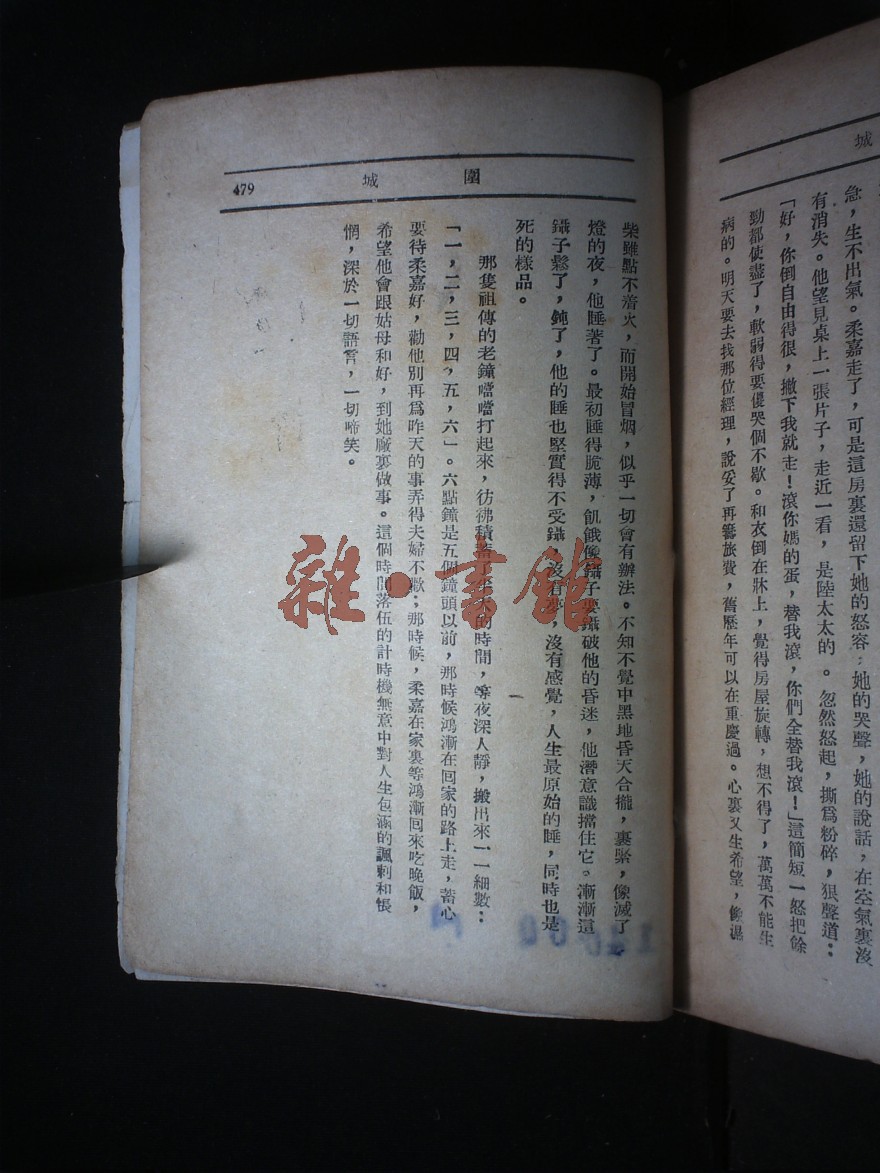 城
急，生不出氣。柔嘉走了，可是這房裏還留下她的怒容，她的哭聲，她的說話，在空氣裏沒
有消失。他望見桌上一張片子，走近一看，是陸太太的。忽然怒起，撕爲粉碎，狠聲道：
「好，你倒自由得很，撇下我就走！滾你媽的蛋，替我滾，你們全替我滾！」這簡短一怒把餘
勁都使盡了，軟弱得要傻哭個不歇。和衣倒在牀上，覺得房屋旋轉，想不得了，萬萬不能生
病的。明天要去找那位經理，說妥了再籌旅費，舊歷年可以在重慶過。心裏又生希望，像濕
圍城
479
柴雖點不着火，而開始冒烟，似乎一切會有辦法。不知不覺中黑地昏天合攏，裹緊，像滅了
燈的夜，他睡著了。最初睡得脆薄，飢餓像鑷子要鑷破他的昏迷，他潛意識擋住它。漸漸這
鑷子鬆了，鈍了，他的睡也堅實得不受鑷，沒有夢，沒有感覺，人生最原始的睡，同時也是
死的樣品。
那隻祖傳的老鐘噹噹打起來，彷彿積蓄了半天的時間，等夜深人靜，搬出來一一細數：
「一，二，三，四，五，六」。六點鐘是五個鐘頭以前，那時候鴻漸在回家的路上走，蓄心
要待柔嘉好，勸他別再爲昨天的事弄得夫婦不歡；那時候，柔嘉在家裏等鴻漸回來吃晚飯，
希望他會跟姑母和好，到她廠裏做事。這個時間落伍的計時機無意中對人生包涵的諷刺和悵
惘，深於一切語言，一切啼笑。
雜·書館